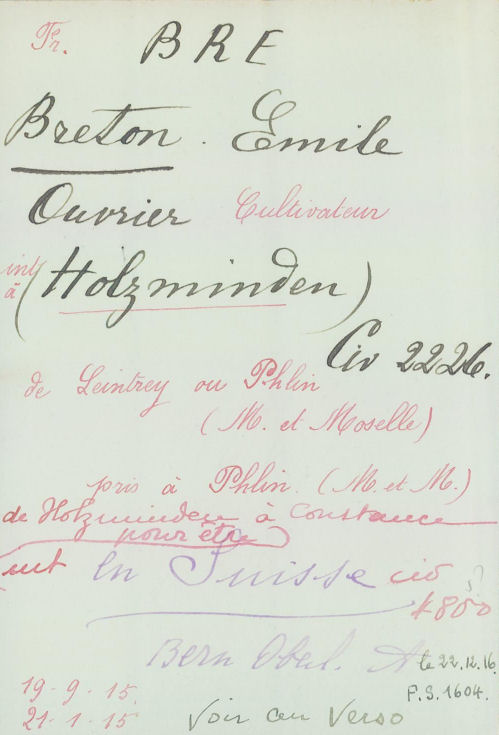 Fr. BRE
Breton. Emile
Ouvrier Cultivateur
int à (Holzminden)
Civ 2226.
de Leintrey ou Phlin
(M. et Moselle)
pris à Phlin. (M. et M.)
de Holzminden à Constance
pour être
int en Suisse civ
4800
Bern Oberl. A
te 22.12.16.
P.S. 1604.
19-9-15.
21-1-15
Voir au Verso